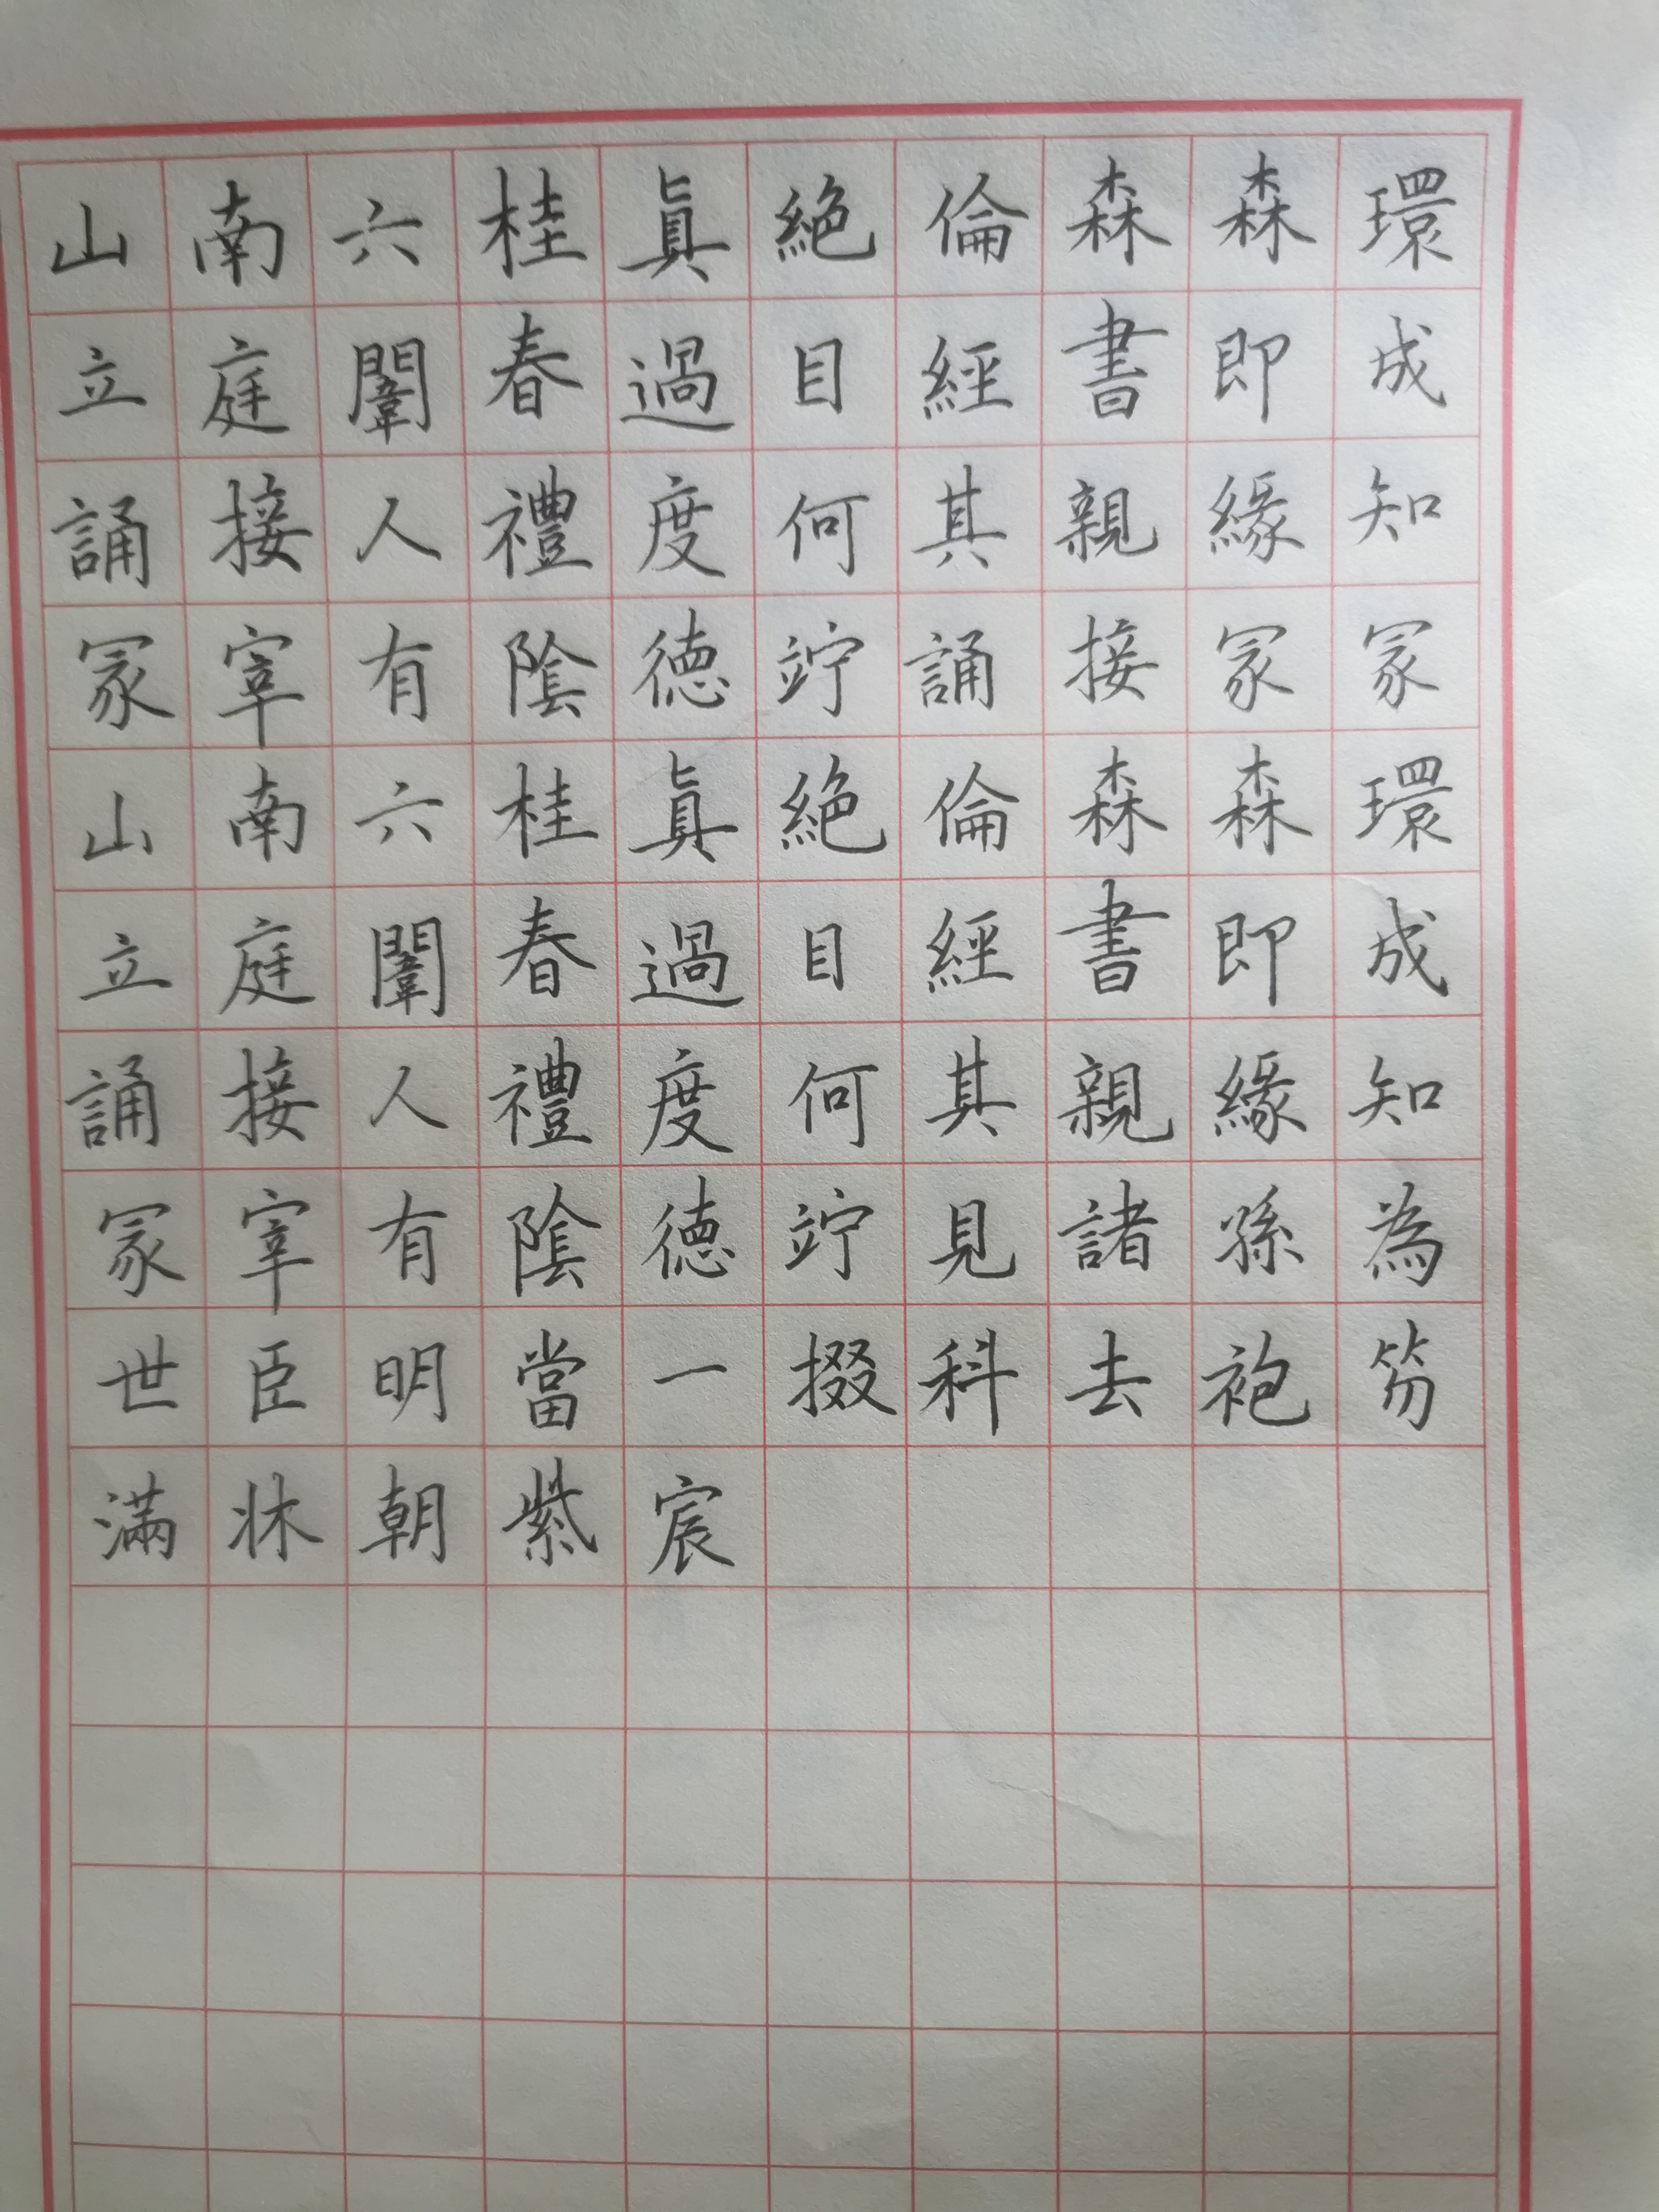 山南六桂眞絕倫森森環
立庭闈春過目經書即成
誦接人禮度何其親緣知
冢宰有陰德竚誦接冢冢
山南六桂眞絕倫森森環
立庭闈春過目經書即成
誦接人禮度何其親緣知
冢宰有陰德竚見諸孫為
世臣明當一掇科去袍笏
滿牀朝紫宸